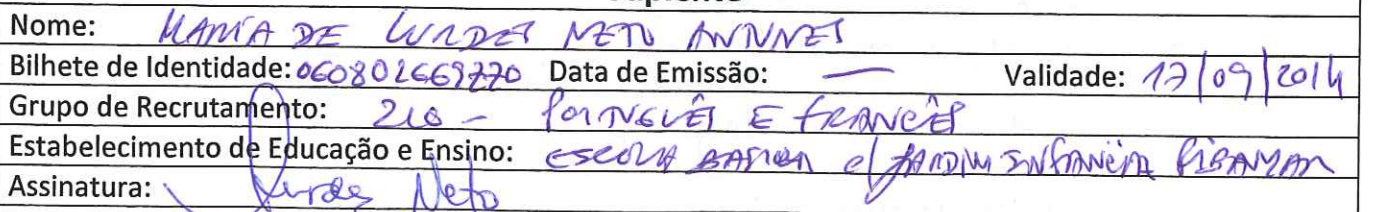 Nome: MARIA DE LURDES NETO ANTUNES
Bilhete de Identidade: 060802669770 Data de Emissão: — Validade: 17/09/2014
Grupo de Recrutamento: 210 - PORTUGUÊS E FRANCÊS
Estabelecimento de Educação e Ensino: ESCOLA BASICA c/ JARDIM INFANCIA
Assinatura: Lurdes Neto